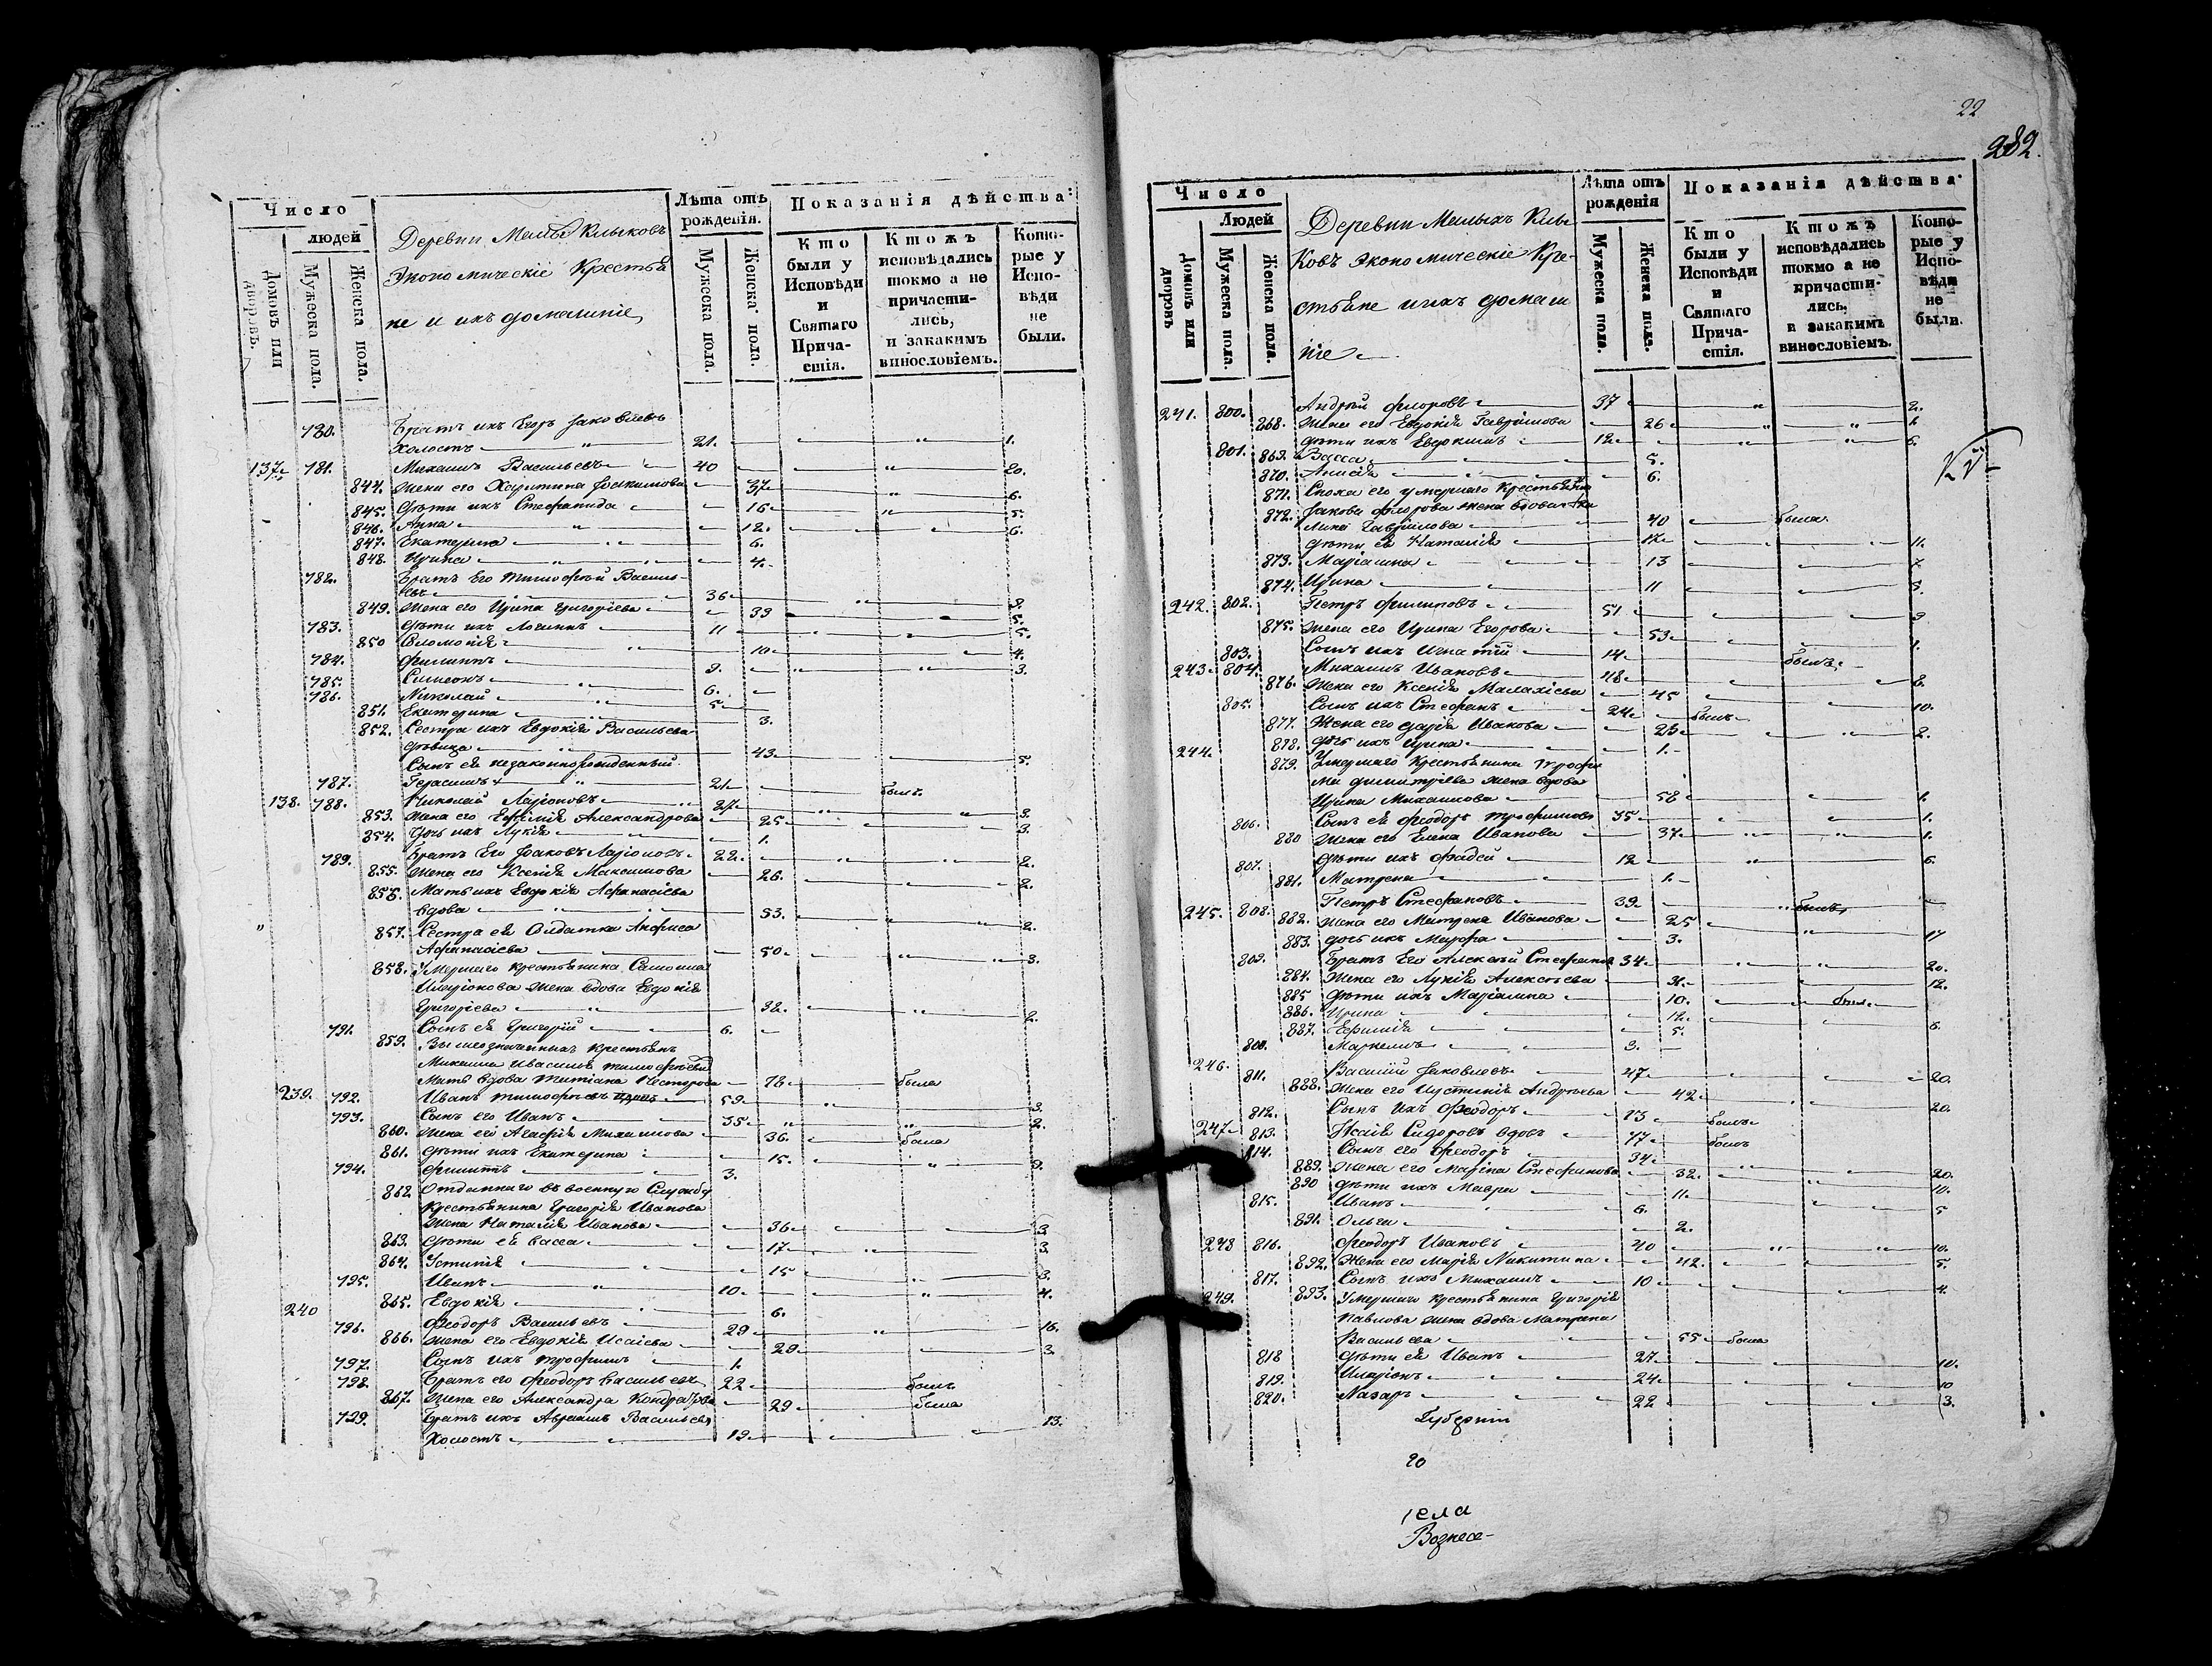 Число
людей
Домовъ или дворовъ.
Мужеска пола.
Женска пола.
Деревни Малых Клыковъ
Экономическіе Крестья
не и ихъ домашніе
Лѣта отъ рожденія.
Мужеска пола.
Женска пола.
Показанія дѣйства:
Кто были у Исповѣди и Святаго Причастія.
Ктожъ исповѣдались токмо а не причастились, и закакимъ винословіемъ.
Которые у Исповѣди не были.
780. Братъ ихъ Егоръ Яковлевъ
холостъ 21. 1.
137. 781. Михаилъ Васильевъ 40 20.
844. Жена его Харитина Іоакимова 37 6.
845. Дѣти ихъ Стефанида 16 5.
846. Анна 12. 6.
847. Екатерина 6.
848. Ирина 4.
782. Братъ Его Тимофѣй Василь-
евъ 36
849. Жена его Ирина Григоріева 39 5.
783. Дѣти ихъ Логинъ 11 5.
850 Соломонія 10 4.
784. Филиппъ 9. 3.
785. Симеонъ 6.
786. Николай 5
851. Екатерина 3.
852. Сестра ихъ Евдокія Васильева
дѣвица 43 5.
Сынъ ея незаконнорожденный
787. Герасимъ 21 былъ
138. 788. Николай Ларіоновъ 27 3.
853. Жена его Евфимія Александрова 25 3.
854. Дочь ихъ Лукія 1.
789. Братъ Его Іаковъ Ларіоновъ 22. 2.
855. Жена его Ксенія Максимова 26. 2.
856. Мать ихъ Евдокія Афанасіева
вдова 53. 2.
857. Сестра ея Солдатка Анфиса
Афанасіева 50 3.
858. Умершаго крестьянина
Иларіонова жена вдова Евдокія
Григоріева 32. 2.
791. Сынъ ея Григорій 6.
859. Вышеозначенныхъ крестьянъ
Михаила Тимофѣевы
Мать вдова Татіана Несторова 78 была
239. 792. Иванъ Тимофѣевъ 59 3.
793. Сынъ его Иванъ 35 2.
860. Жена его Агафія Михаилова 36. была
861. Дѣти ихъ Екатерина 15. 9.
794. Филиппъ 3.
862. Отданнаго въ военную Службу
Крестьянина Григорія Иванова
Жена Наталія Иванова 36 3
863. Дѣти ея Васса 17 3.
864. Устинія 15 3.
795. Иванъ 10 4.
865. Евдокія 6.
240 796. Ѳеодоръ Васильевъ 29 16.
866. Жена его Евдокія Исаіева 29. 3.
797. Сынъ ихъ Трофимъ 1.
798. Братъ его Ѳеодоръ Васильевъ 22 былъ
867. Жена его Александра Кондратова 29 была
799. Братъ ихъ Авраамъ Васильевъ 13.
Холостъ 19
22
282.
Число
Людей
Домовъ или дворовъ
Мужеска пола.
Женска пола.
Деревни Малыхъ Клы-
ковъ Экономическіе Кре-
стьяне и ихъ домаш
ніе
Лѣта отъ рожденія
Мужеска пола.
Женска пола.
Показанія дѣйства
Кто были у Исповѣди и Святаго Причастія.
Ктожъ исповѣдались токмо а не причастились, и закакимъ винословіемъ.
Которые у Исповѣди не были.
241. 800. Андрей Флоровъ 37 2.
868. Жена его Евдокія Гавріилова 26
801. Дѣти ихъ Евдокимъ 12 6.
869. Васса 5.
870. Анисія 6.
871. Сноха его умершаго Крестьянина
872. Іакова Флорова жена вдова
Гавріилова 40 была
Дѣти ея Наталія 17 11.
873. Маріамна 13 7.
874. Ирина 11 5.
242. 802. Петръ Филиповъ 51 9
875. Жена его Ирина Егорова 53 1.
803. Сынъ ихъ Игнатій 14 былъ
243 804. Михаилъ Ивановъ 48 8.
876. Жена его Ксенія Малахіева 45 10.
805. Сынъ ихъ Стефанъ 24 былъ
877. Жена его Дарія Ивакова 25 2.
878. Дочь ихъ Ирина 1.
244. 879. Умершаго Крестьянина Трофи
ма Димитріева жена вдова
Ирина Михаилова 58 1.
806. Сынъ ея Ѳеодоръ Трофимовъ 35 1.
880 Жена его Елена Иванова 37 1.
807. Дѣти ихъ Фадей 12 6.
881. Матрена 1.
245. 808. Петръ Стефановъ 39 былъ
882. Жена его Матрена Иванова 25 17
883. дочь ихъ Марфа 3.
809. Братъ Его Алексѣй Стефановъ 34 20.
884. Жена его Лукія Алексѣева 31. 12.
885 Дѣти ихъ Маріамна 10. была
886. Ирина 12. 6.
887. Евфимія 5.
Маркелъ 3.
246. 811. Василій Іаковлевъ 47 20.
888. Жена его Иустинія Андреева 42 20.
812. Сынъ ихъ Ѳеодоръ 23 былъ
247 813. Исаія Сидоровъ вдовъ 77 былъ
814. Сынъ его Ѳеодоръ 34
889. Жена его Марина Стефанова 32. 20.
890 Дѣти ихъ Мавра 11. 10.
815. Иванъ 6. 5
891. Ольга 2.
248 816. Ѳеодоръ Ивановъ 40 10.
892. Жена его Марія Никитина 42. 5.
817. Сынъ ихъ Михаилъ 10 4.
249. 893. Умершаго Крестьянина Григорія
Павлова жена вдова Матрена
Васильева 55 была
818 Дѣти ея Иванъ 27 10.
819. Иларіонъ 24 10
820. Назаръ 22 3.
Губерніи
20
села
Вознесе-